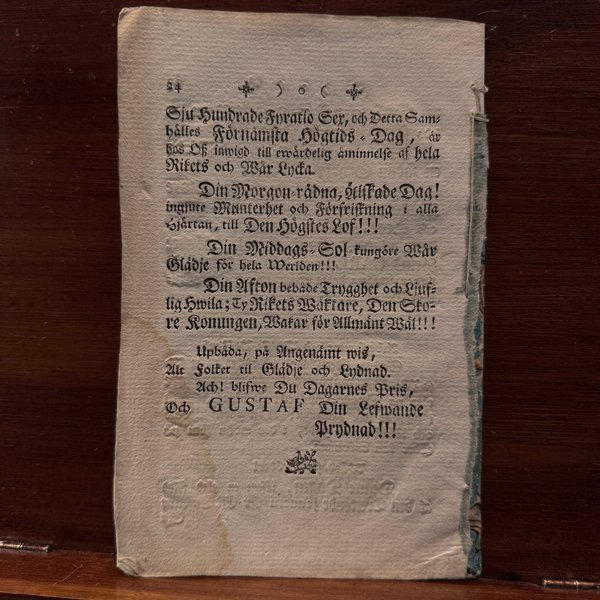 24 ) o (
Sju Hundrade Fyratio Sex, och Detta Sam-
hälles Förnämsta Högtids-Dag, äv
hos Oß inwigd till ewärdelig åminnelse af hela
Rikets och Wår Lycka.
Din Morgon-rådna, Älskade Dag!
ingjute Munterhet och Förfriskning i alla
Hjärtan, till Den Högstes Lof!!!
Din Middags-Sol kungöre Wår
Glädje för hela Werlden!!!
Din Afton bebåde Trygghet och Ljuf-
lig Hwila; Ty Rikets Wäktare, Den Sto-
re Konungen, Wakar för Allmänt Wäl!!!
Upbåda, på Angenämt wis,
Alt Folket til Glädje och Lydnad.
Ach! blifwe Du Dagarnes Pris,
Och GUSTAF Din Lefwande
Prydnad!!!